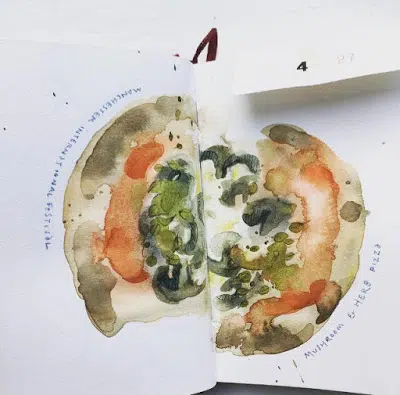 MANCHESTER INTERNATIONAL FESTIVAL
4 27
MUSHROOM & HERB PIZZA